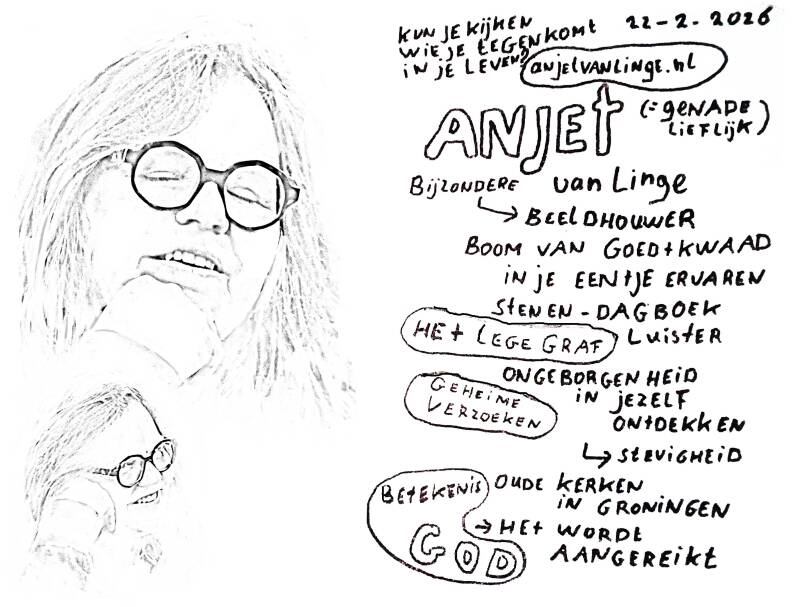 KUN JE KIJKEN 22-2-2026
WIE JE tEGENKOMt
IN JE LEVEN? anjelvanlinge.nl
ANJEt (=GENADE
LIEFLIJK)
BIJZONDERE van Linge
↳ BEELDHOUWER
BOOM VAN GOED+KWAAD
IN JE EENTJE ERVAREN
StENEN-DAGBOEK
HEt LEGE GRAF LUISTER
ONGEBORGENHEID
GEHEIME IN JEZELF
VERZOEKEN ONtDEKKEN
↳ StEVIGHEID
BEtEKENIS OUDE KERKEN
IN GRONINGEN
→ HEt WORDt
GOD AANGEREIKt